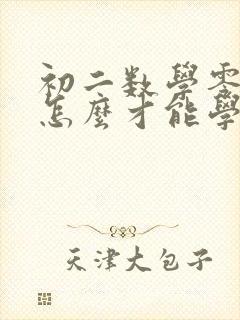 初二数學零
怎麼才能學
天津大包子